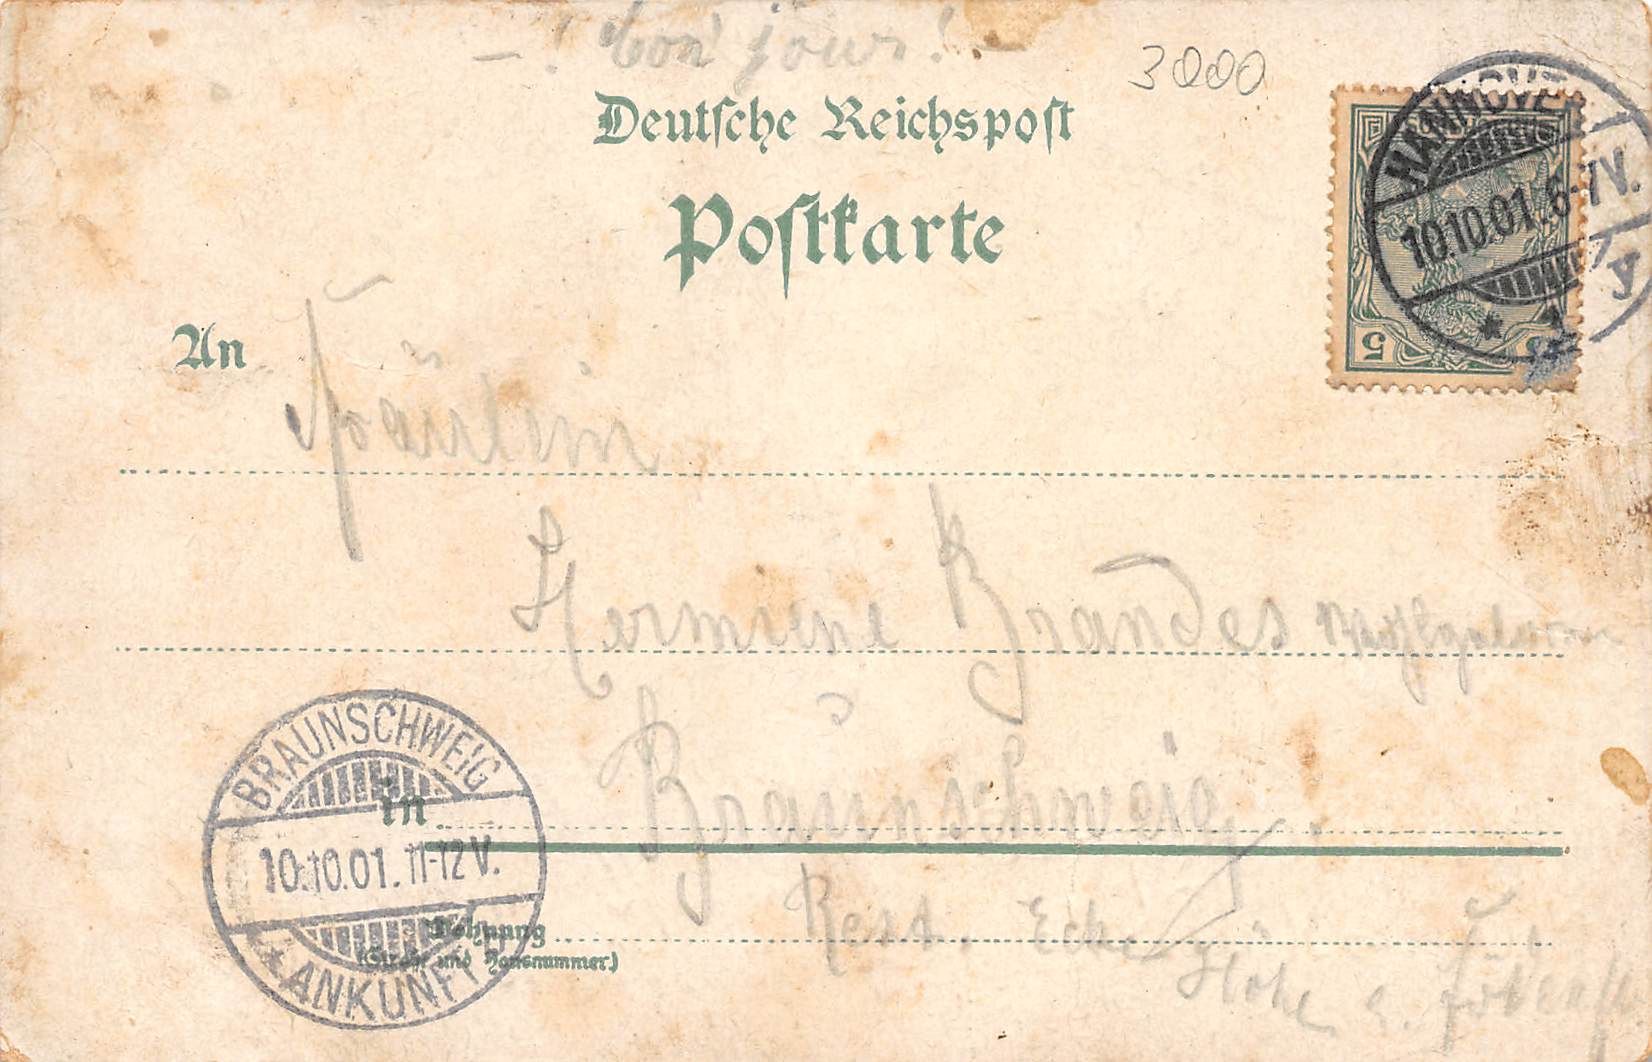 –! bon jour! –
3000
Deutsche Reichspost
Postkarte
HANNOVER
10.10.01. 6-7V.
* 1 y
5
An Fräulein
Hermine Brandes
BRAUNSCHWEIG
10.10.01. 11-12V.
* ANKUNFT
in Braunschweig
Wohnung
(Straße und Hausnummer)
Rest. Ecke
Höhe